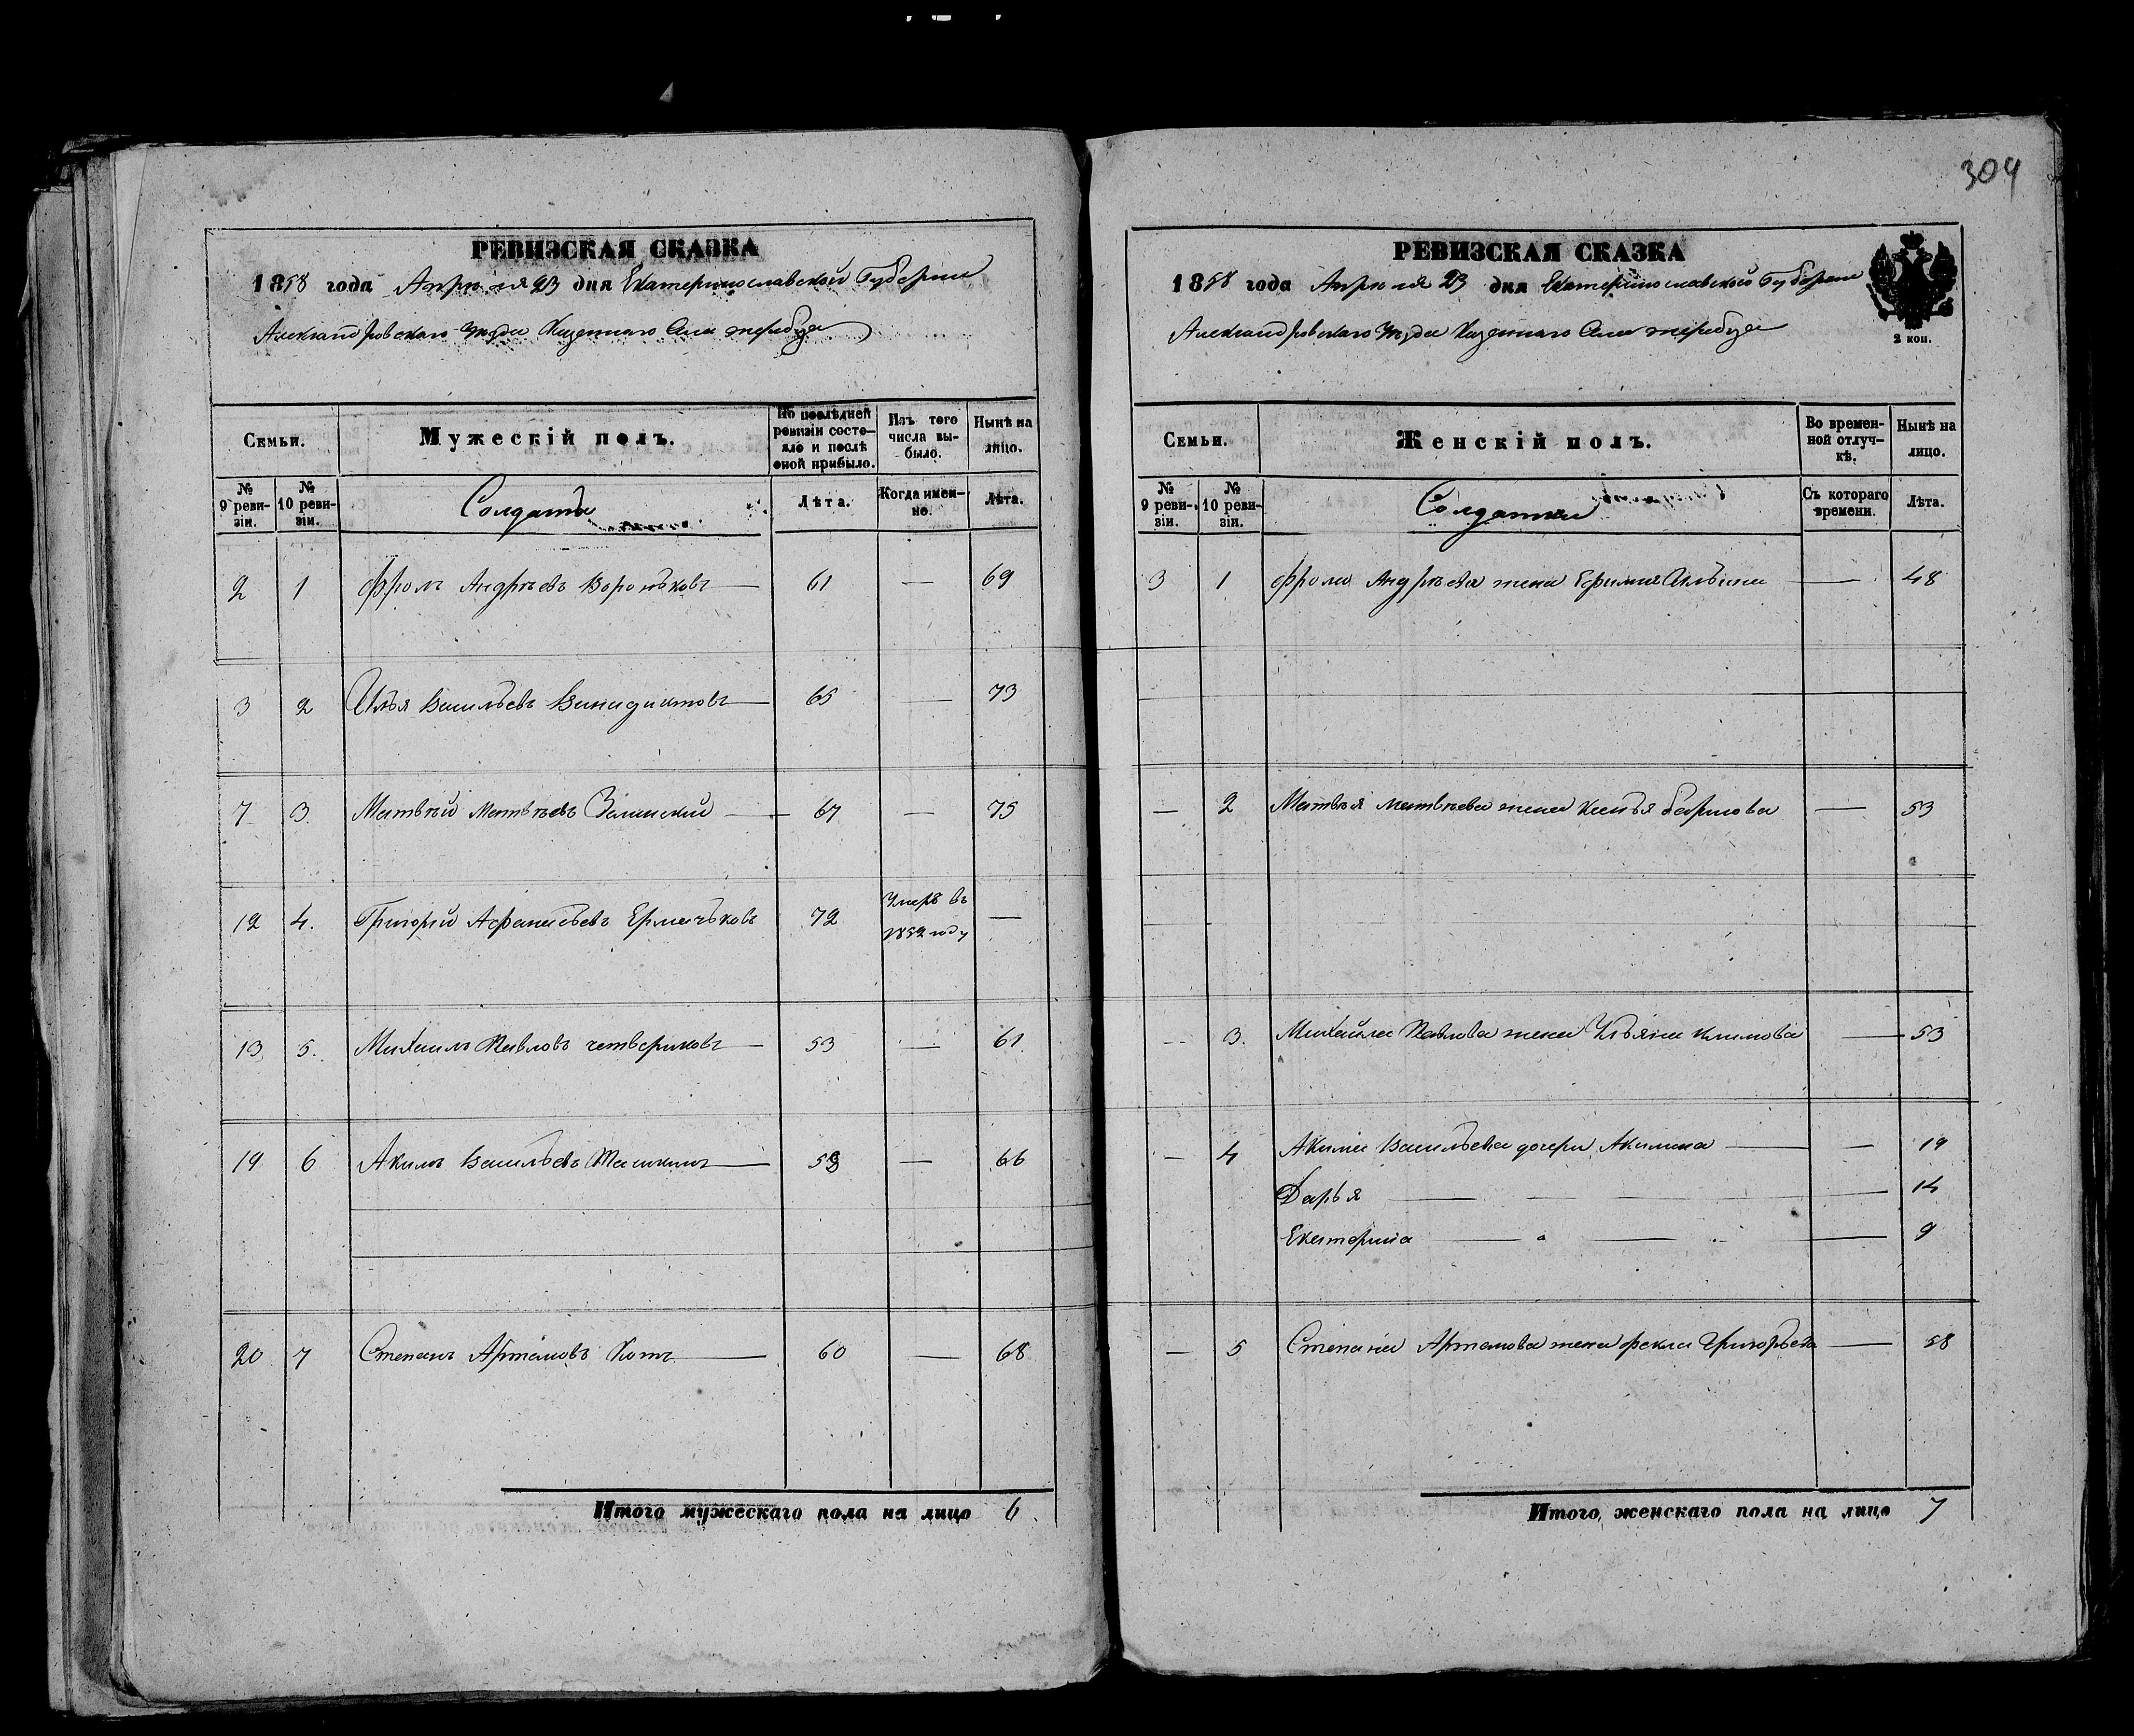 304
РЕВИЗСКАЯ СКАЗКА
1858 года Апреля 23 дня Екатеринославской Губернии
Александровского Уезда Казенного Села жеребца
Семьи.
Мужескій полъ.
По послѣдней ревизіи состояло и послѣ оной прибыло.
Изъ того числа выбыло.
Нынѣ на лицо.
№ 9 ревизіи.
№ 10 ревизіи.
Солдаты
Лѣта.
Когда именно.
Лѣта.
2 1 Фролъ Андрѣевъ 61 — 69
3 2 Илья Васильевъ Винидиктовъ 65 — 73
7 3. Матвѣй Матвѣевъ 67 — 75
12 4. Григорій Афанасьевъ 72 Умеръ въ 1852 году —
13 5. Михаилъ Павловъ четвериковъ 53 — 61
19 6 Акимъ Васильевъ 58 — 66
20 7 Степанъ Артамовъ Котъ 60 — 68
Итого мужескаго пола на лицо 6
РЕВИЗСКАЯ СКАЗКА
1858 года Апреля 23 дня Екатеринославской Губернии
Александровского Уезда Казенного Села жеребца
2 коп.
Семьи.
Женскій полъ.
Во временной отлучкѣ.
Нынѣ на лицо.
№ 9 ревизіи.
№ 10 ревизіи.
Солдатки
Съ котораго времени.
Лѣта.
3 1 Фрола Андрѣева жена Ефимия — 48
— 2 Матвѣя Матвѣева жена — 53
— 3. Михайла Павлова жена Ульяна климова — 53
— 4 Акима Васильева дочери Акилина — 19
Дарья — 14
Екатерина — 9
— 5 Степана Артамова жена фекла Григорьева — 58
Итого женскаго пола на лицо 7